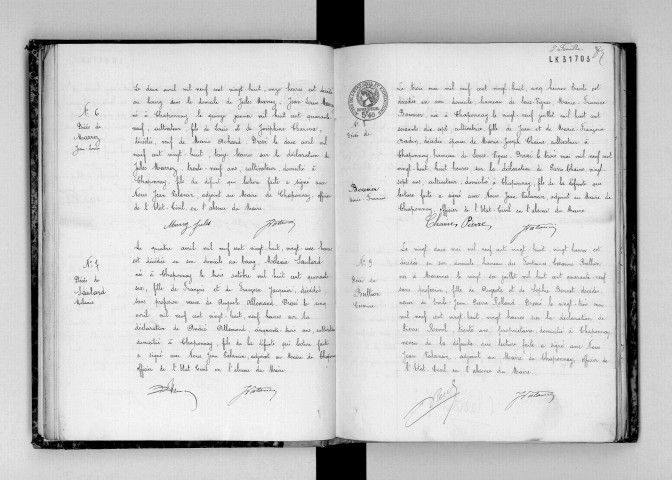 N° 6
Décès de
Marrey
Jean Louis
Le deux avril mil neuf cent vingt huit, onze heures est décédé
au bourg dans le domicile de Jules Marrey, Jean Louis Marrey
né à Chaponnay, le quinze janvier mil huit cent quarante
neuf, cultivateur, fils de Louis et de Joséphine Charme,
décédés, veuf de Marie Achard. Dressé le deux avril mil
neuf cent vingt huit, treize heures sur la déclaration de
Jules Marrey, trente-neuf ans, cultivateur, domicilié à
Chaponnay, fils du défunt qui lecture faite a signé avec
Nous Jean Palanair, adjoint au Maire de Chaponnay, officier
de l'Etat-Civil en l'absence du Maire.
Marrey Jules
N° 7
Décès de
Lantard
Mélanie
Le quatre avril mil neuf cent vingt huit, vingt une heures
est décédée en son domicile au bourg, Mélanie Lantard
née à Chaponnay le trois octobre mil huit cent quarante
six, fille de François et de Françoise Jacquier, décédés,
sans profession veuve de Auguste Allemand. Dressé le cinq
avril mil neuf cent vingt huit, neuf heures sur la
déclaration de André Allemand, cinquante deux ans, cultivateur
domicilié à Chaponnay, fils de la défunte qui lecture faite
a signé avec Nous Jean Palanair, adjoint au Maire de Chaponnay
officier de l'Etat Civil en l'absence du Maire.
LK31703
5f40
N° 8
Décès de
Bonnier
Marie Francine
Le trois mai mil neuf cent vingt huit, cinq heures trente est
décédée en son domicile hameau de sous-Vignes, Marie Francine
Bonnier, née à Chaponnay le neuf juillet mil huit cent
soixante dix sept, cultivatrice, fille de Jean et de Marie Françoise
décédés, épouse de Marie Joseph Chaine, cultivateur à
Chaponnay, hameau de sous-Vignes, Dressé le trois mai mil neuf cent
vingt huit, huit heures sur la déclaration de Pierre Chaine, vingt
sept ans, cultivateur, domicilié à Chaponnay, fils de la défunte qui
lecture faite a signé avec Nous Jean Palanair, adjoint au Maire de
Chaponnay, officier de l'Etat-Civil en l'absence du Maire.
Chaine Pierre
N° 9
Décès de
Bullion
Le vingt deux mai mil neuf cent vingt huit, vingt heures est
décédée en son domicile hameau des Fontaines Bullion
née à le vingt six juillet mil huit cent quarante neuf
sans profession, fille de Auguste et de Sophie décédés,
veuve de Jean Pierre Rolland. Dressé le vingt trois mai
mil neuf cent vingt huit vingt heures sur la déclaration de
Pierre trente ans, propriétaire, domicilié à Chaponnay,
neveu de la défunte qui lecture faite a signé avec Nous
Jean Palanair, adjoint au Maire de Chaponnay, officier de
l'Etat Civil en l'absence du Maire.